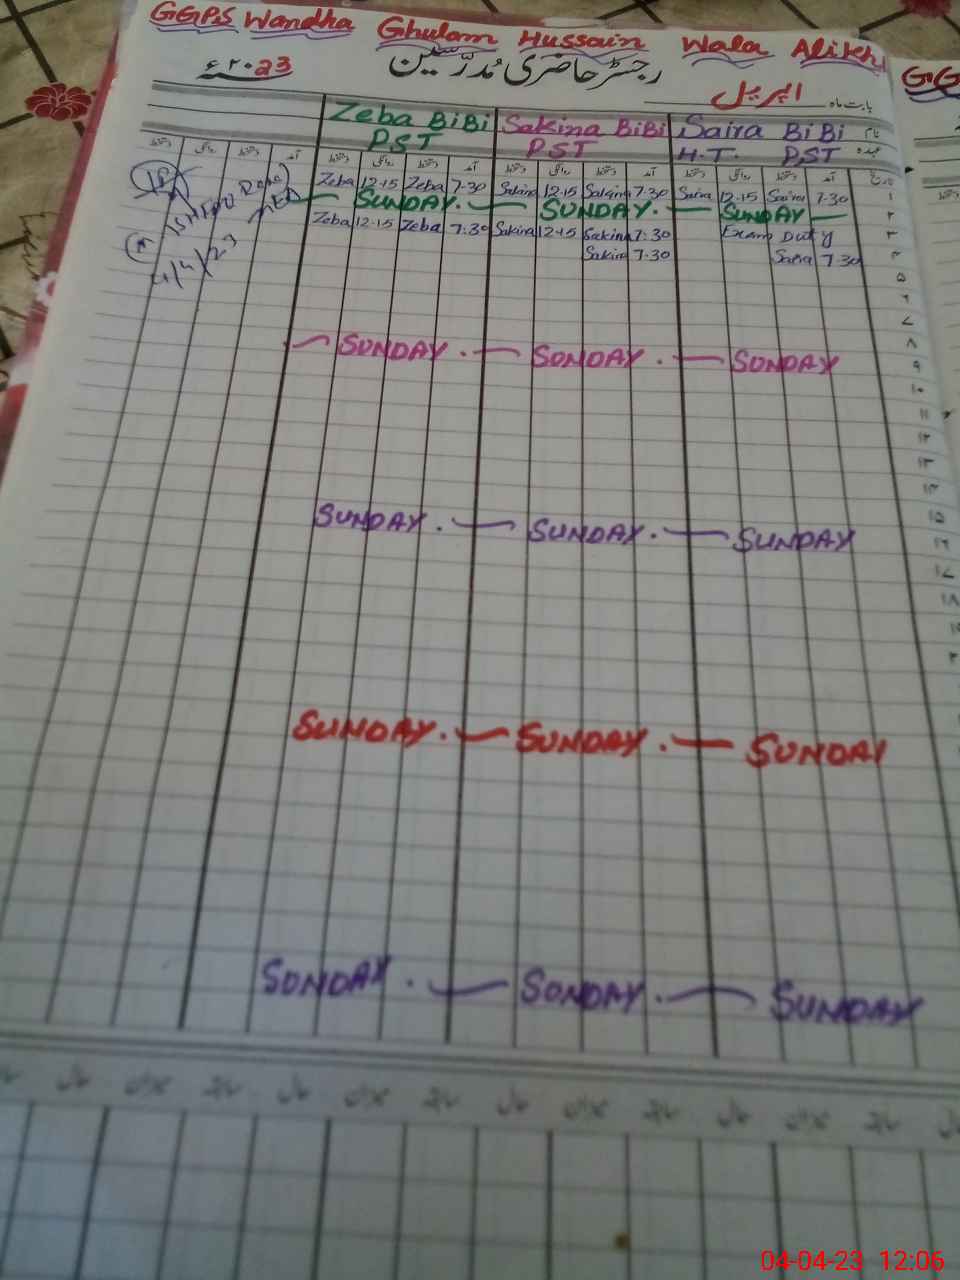 GGPS Wandha Ghulam Hussain Wala Alikhl
GG
رجسٹر حاضری مُدرّسین
۲۰23ء
بابت ماہ اپریل
نام Saira BiBi Sakina BiBi Zeba BiBi
عہدہ H.T. PST PST PST
تاریخ آمد دستخط روانگی دستخط آمد دستخط روانگی دستخط آمد دستخط روانگی دستخط آمد دستخط روانگی دستخط
Zeba 12-15 Zeba 7-30 Sakina 12-15 Sakina 7-30 Saira 12-15 Saira 7-30 ۱
SUNDAY. SUNDAY. SUNDAY ۲
Zeba 12-15 Zeba 7:30 Sakina 12-15 Sakina 7:30 Exam Duty ۳
Sakina 7-30 Saira 7-30 ۴
4/4/23
۵
۶
۷
۸
SUNDAY. SUNDAY. SUNDAY ۹
۱۰
۱۱
۱۲
۱۳
۱۴
۱۵
SUNDAY. SUNDAY. SUNDAY ۱۶
۱۷
۱۸
۱۹
SUNDAY. SUNDAY. SUNDAY
SUNDAY. SUNDAY. SUNDAY
04-04-23 12:06